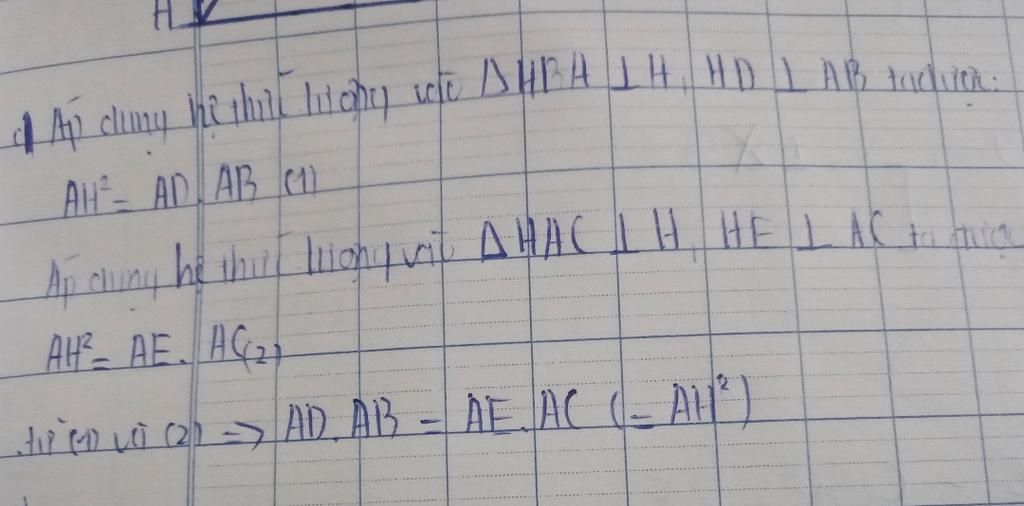 H
c) Áp dụng hệ thức lượng với Δ HBA ⊥ H, HD ⊥ AB ta được:
AH² = AD. AB (1)
Áp dụng hệ thức lượng với Δ HAC ⊥ H, HE ⊥ AC ta được
AH² = AE. AC (2)
từ (1) và (2) => AD. AB = AE. AC (= AH²)